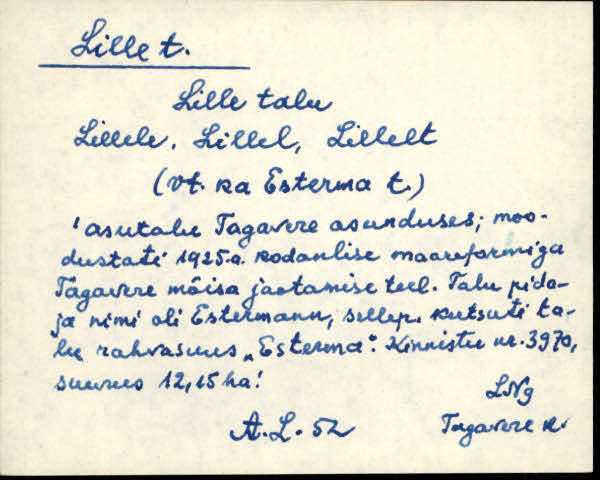 Lille t.
Lille talu
Lillele, Lillel, Lillelt
(vt. ka Esterma t.)
'asutalu Tagavere asunduses; moo-
dustati 1925.a. kodanlise maareformiga
Tagavere mõisa jaotamise teel. Talu pida-
ja nimi oli Estermann, sellep. kutsuti ta-
lu rahvasuus „Esterma". Kinnistu nr. 3970,
suurus 12,15 ha.'
LNg
A.L. 52 Tagavere k.